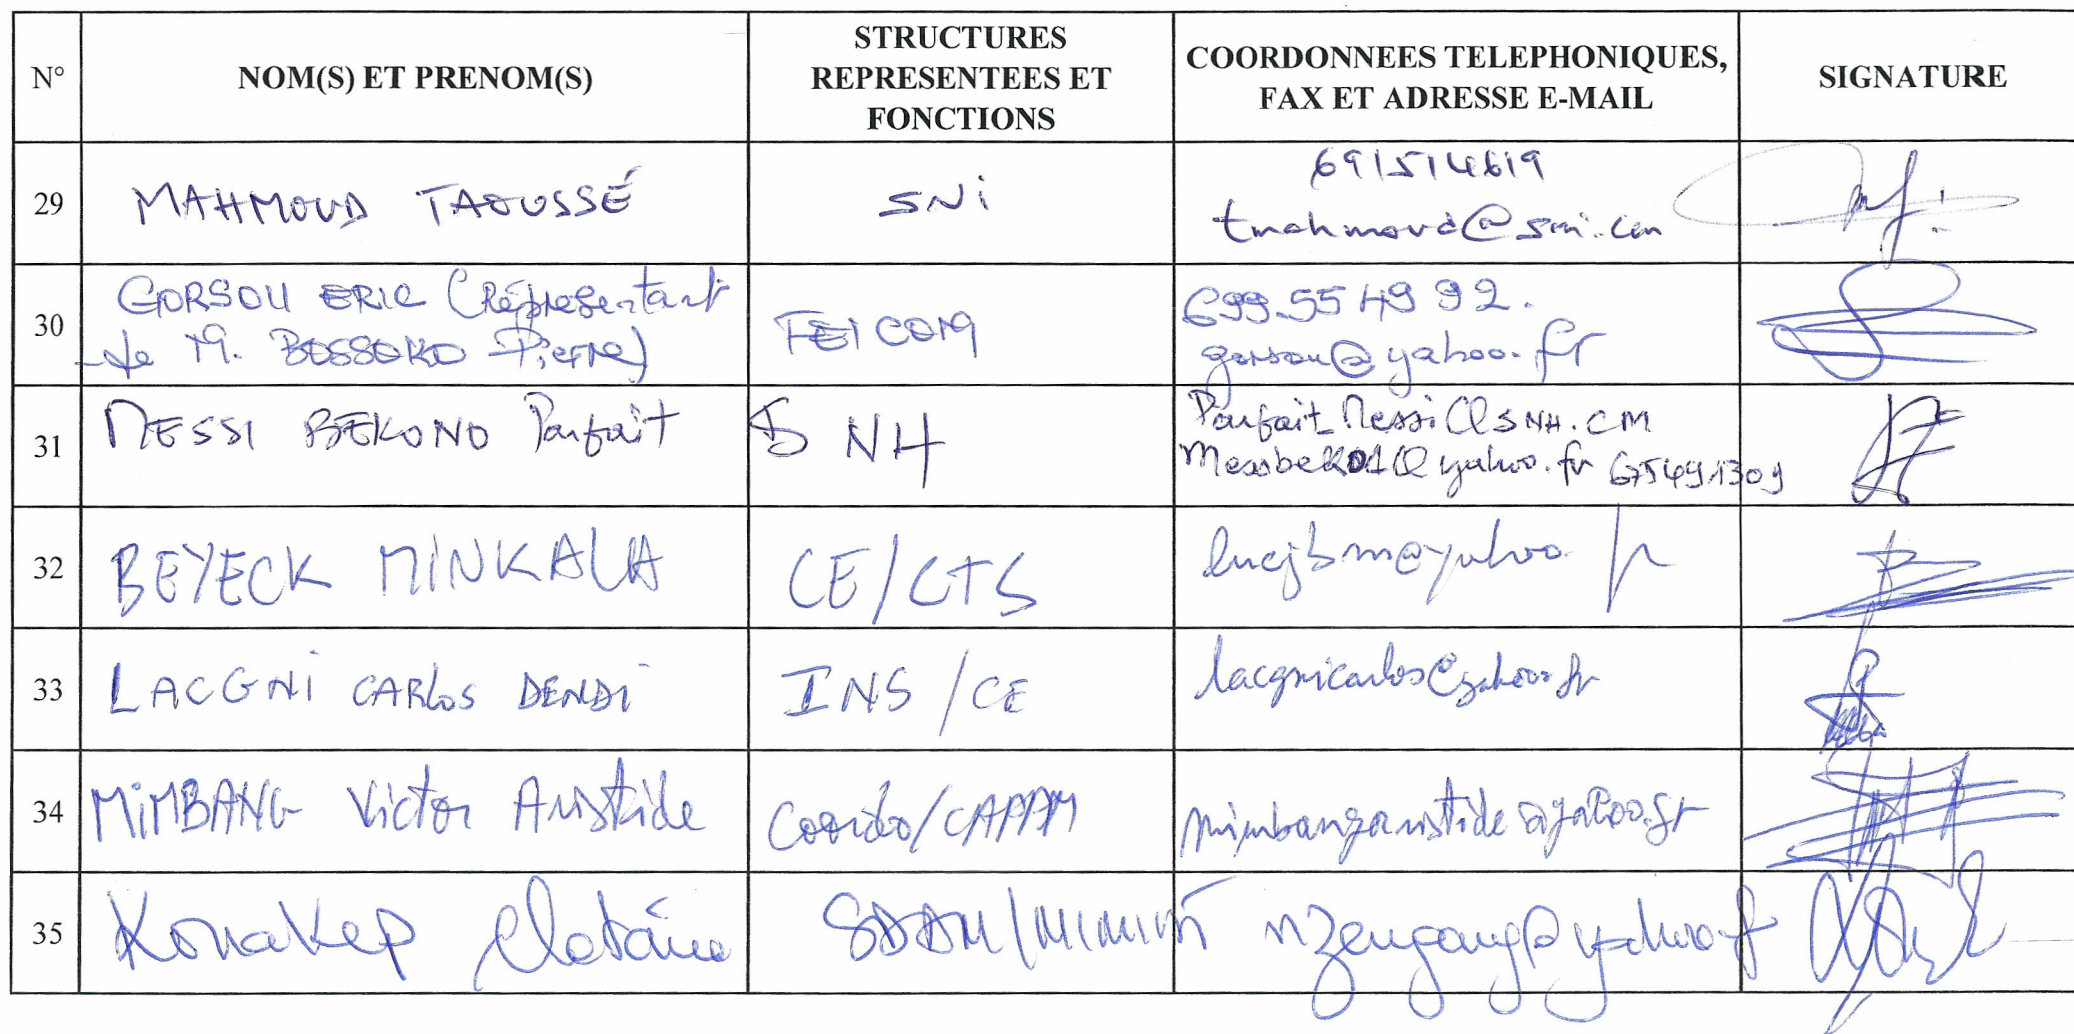 N° NOM(S) ET PRENOM(S) STRUCTURES REPRESENTEES ET FONCTIONS COORDONNEES TELEPHONIQUES, FAX ET ADRESSE E-MAIL SIGNATURE
29 MAHMOUD TAOUSSÉ SNi 691514619
tmahmoud@sni.cm
30 GORSOU ERIC (Représentant FEICOM 699.55 49 92.
de M. BOSSOKO Pierre) gorsou@yahoo.fr
31 MESSI BEKONO Parfait SNH Parfait_Messi@SNH.CM
Messbeko1@yahoo.fr 675491309
32 BEYECK MINKALA CE/CTS lucjbm@yahoo.fr
33 LACGNi CARLOS DENDi INS/CE lacgnicarlos@yahoo.fr
34 MiMBANG Victor Aristide Coordo/CAPAM mimbangaristide@yahoo.fr
35 SDAM/MIMINT nzengang@yahoo.fr